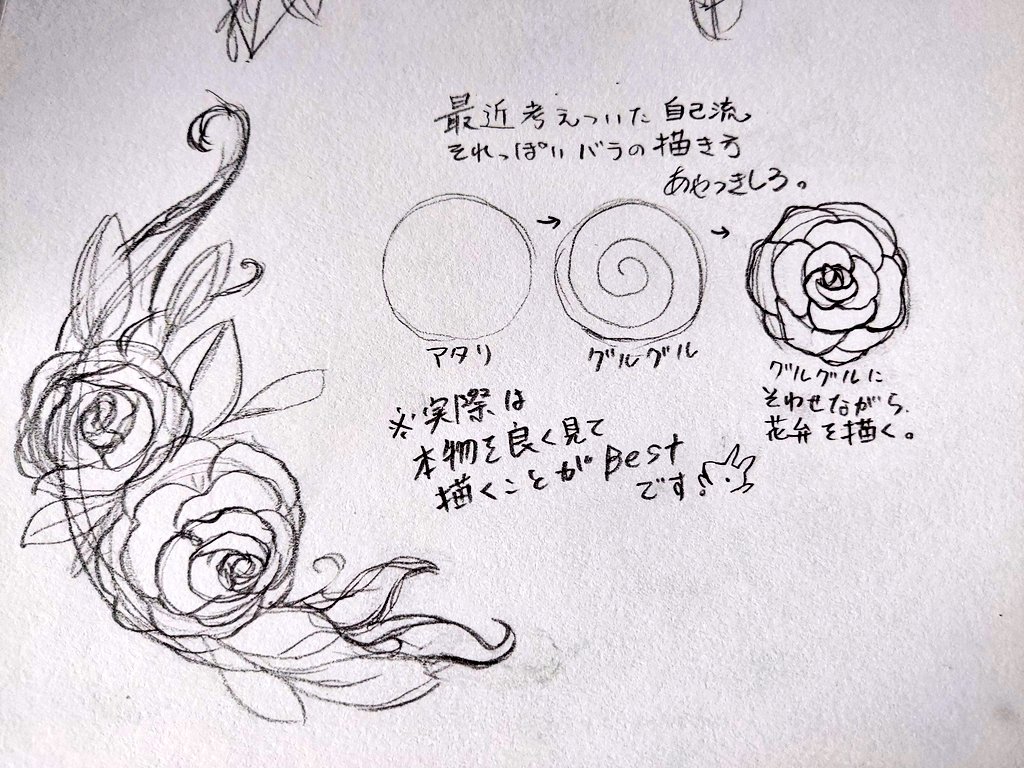 最近考えついた自己流。
それっぽいバラの描き方
あやつきしろ。
→
→
アタリ
グルグル
グルグルに
そわせながら、
花弁を描く。
※実際は
本物を良く見て
描くことがBest
です!